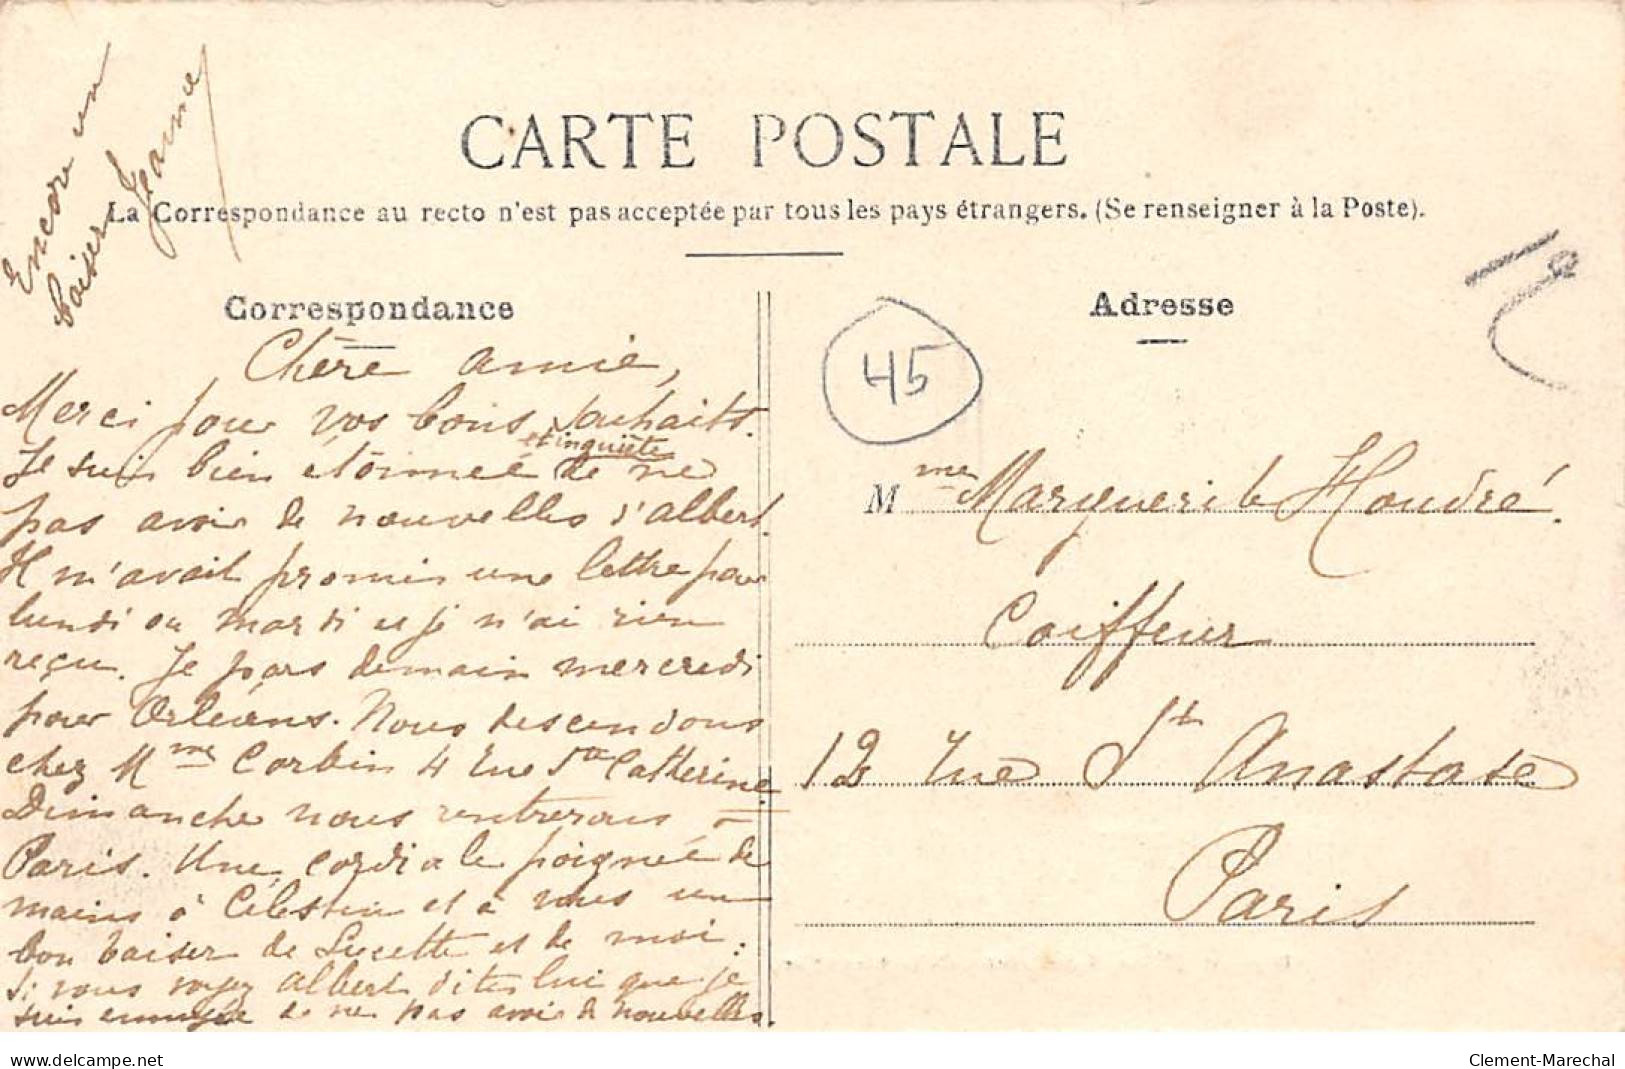 Encore un
baiser Jeanne
CARTE POSTALE
La Correspondance au recto n'est pas acceptée par tous les pays étrangers. (Se renseigner à la Poste).
Correspondance
Chère amie,
Merci pour vos bons souhaits.
et inquiète
Je suis bien étonneé de ne
pas avoir de nouvelles d'albert.
Il m'avait promis une lettre pour
lundi ou mardi et je n'ai rien
reçu. Je pars demain mercredi
pour Orléans. Nous descendons
chez Mme Corbin 4 rue Ste Catherine.
Dimanche nous rentrerons à
Paris. Une cordiale poigneé de
mains à Célestin et à vous un
bon baiser de Lucette et de moi.
Si vous voyez albert dites lui que je
suis ennuyée de ne pas avoir de nouvelles.
Adresse
45
Mme Marguerite Houdré.
Coiffeur
12 rue St Anastase
Paris
www.delcampe.net
Clement-Marechal